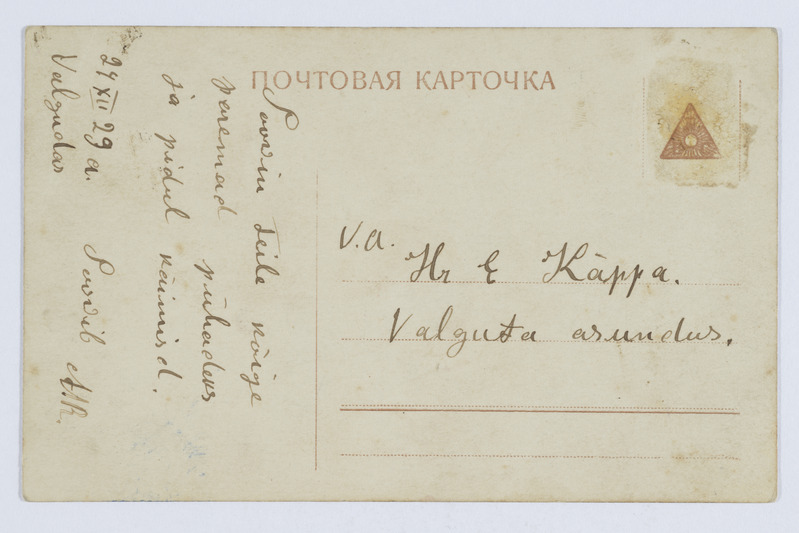 ПОЧТОВАЯ КАРТОЧКА
Soovin Teile kõige
paremad pühadeks
ja pidul käimisd.
24 XII 29 a. Soovib A.R.
Valgudas
V.A.
Hr E Käppa.
Valguta asundus.